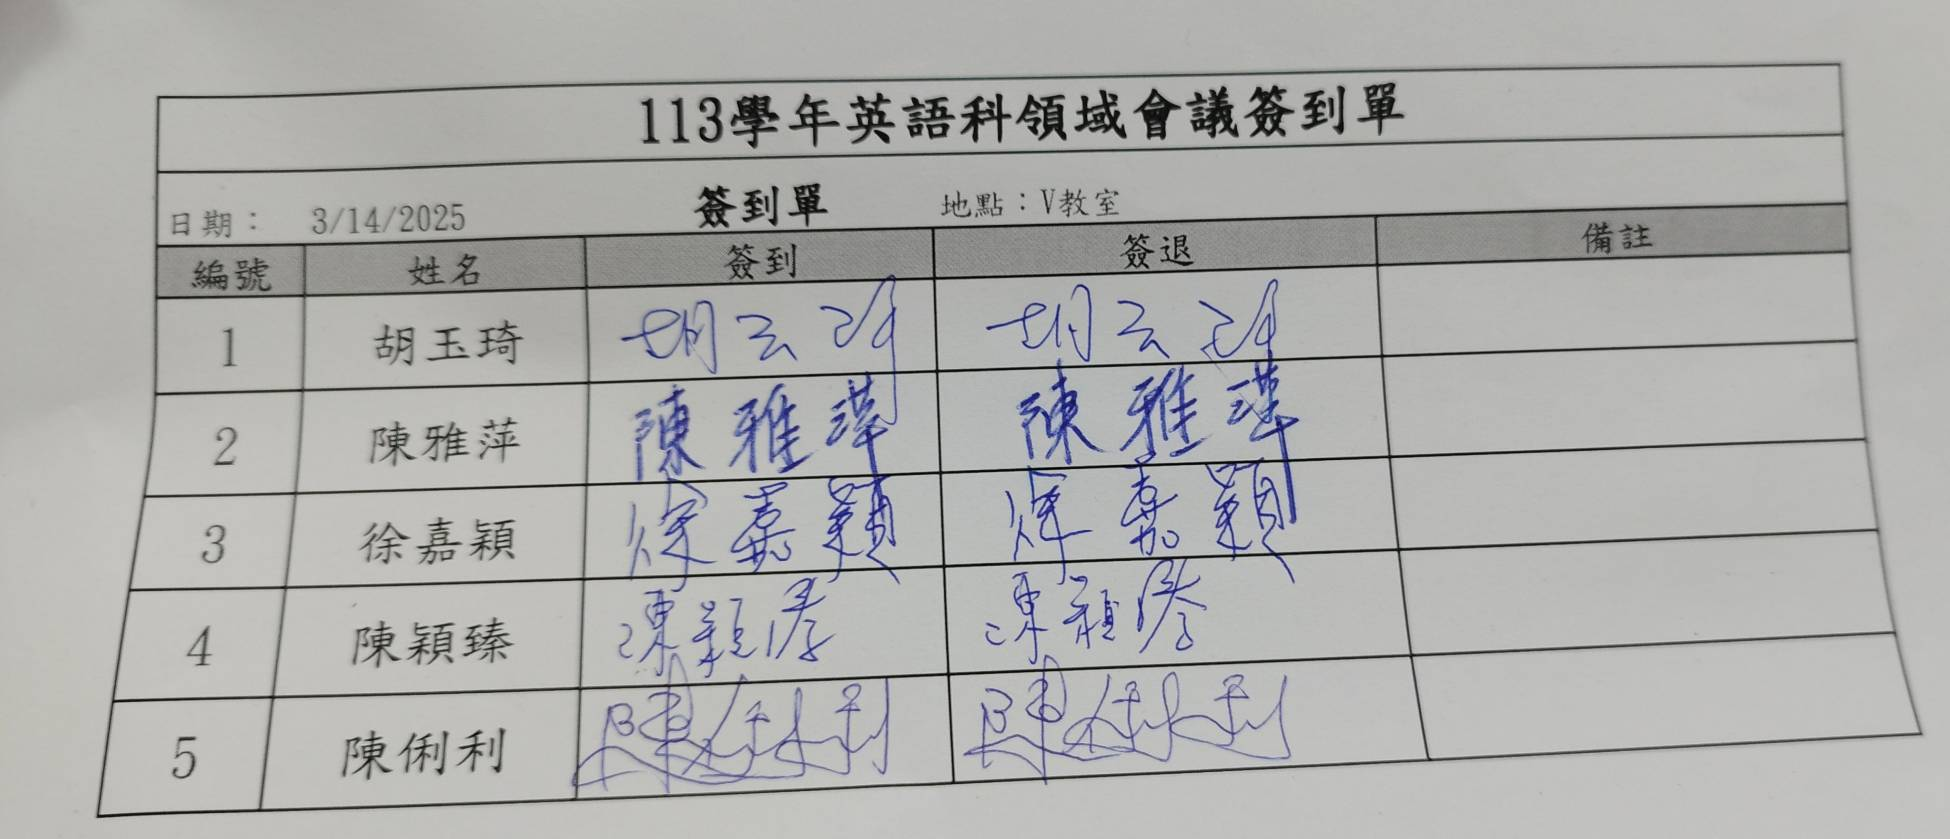 113學年英語科領域會議簽到單
日期： 3/14/2025 簽到單 地點：V教室
編號 姓名 簽到 簽退 備註
1 胡玉琦 胡玉琦 胡玉琦
2 陳雅萍 陳雅萍 陳雅萍
3 徐嘉穎 徐嘉穎 徐嘉穎
4 陳穎臻 陳穎臻 陳穎臻
5 陳俐利 陳俐利 陳俐利